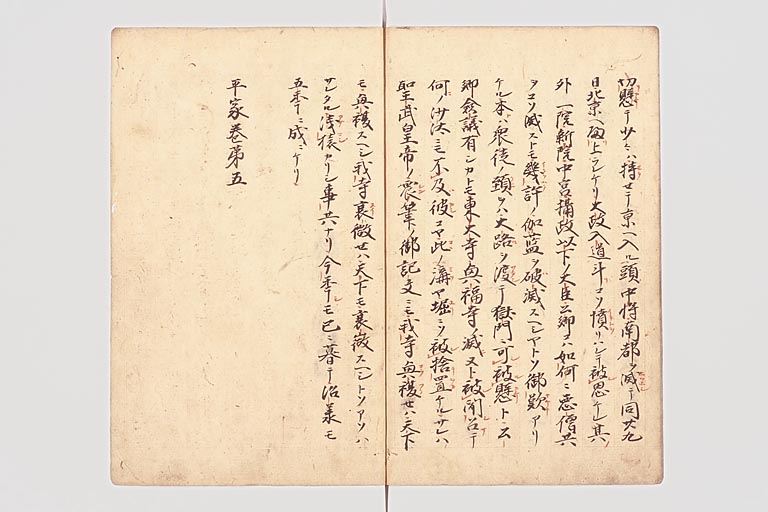 切懸テサヽハ持セテ京ヘ入ル頭中将南都ヲ滅テ同廿九
日北京ヘ皈上ラレケリ大政入道斗コソ憤リハレテ被思ケレ其
外一院新院中宮摂政以下ノ大臣公卿ハ如何ニ悪僧共
ヲコソ滅ストモ幾許ノ伽藍ヲ破滅スヘシヤトソ御歎アリ
ケル本ハ衆徒ノ頸ヲハ大路ヲ渡テ獄門ニ可被懸トニ
卿僉議有シカトモ東大寺興福寺ノ滅ヌト被聞召テ
何ノ沙汰ニモ不及彼コヤ此ノ溝ヤ堀ニソ被捨置ケルサレハ
聖武皇帝ノ震筆ノ御記文ニモ我寺興複セハ天下
モ興複スヘシ我寺衰微セハ天下モ衰微スヘシトソアソハ
サレタル浅猿カリシ事共ナリ今年モ已ニ暮テ治承モ
五年ニ成ニケリ
平家巻第五